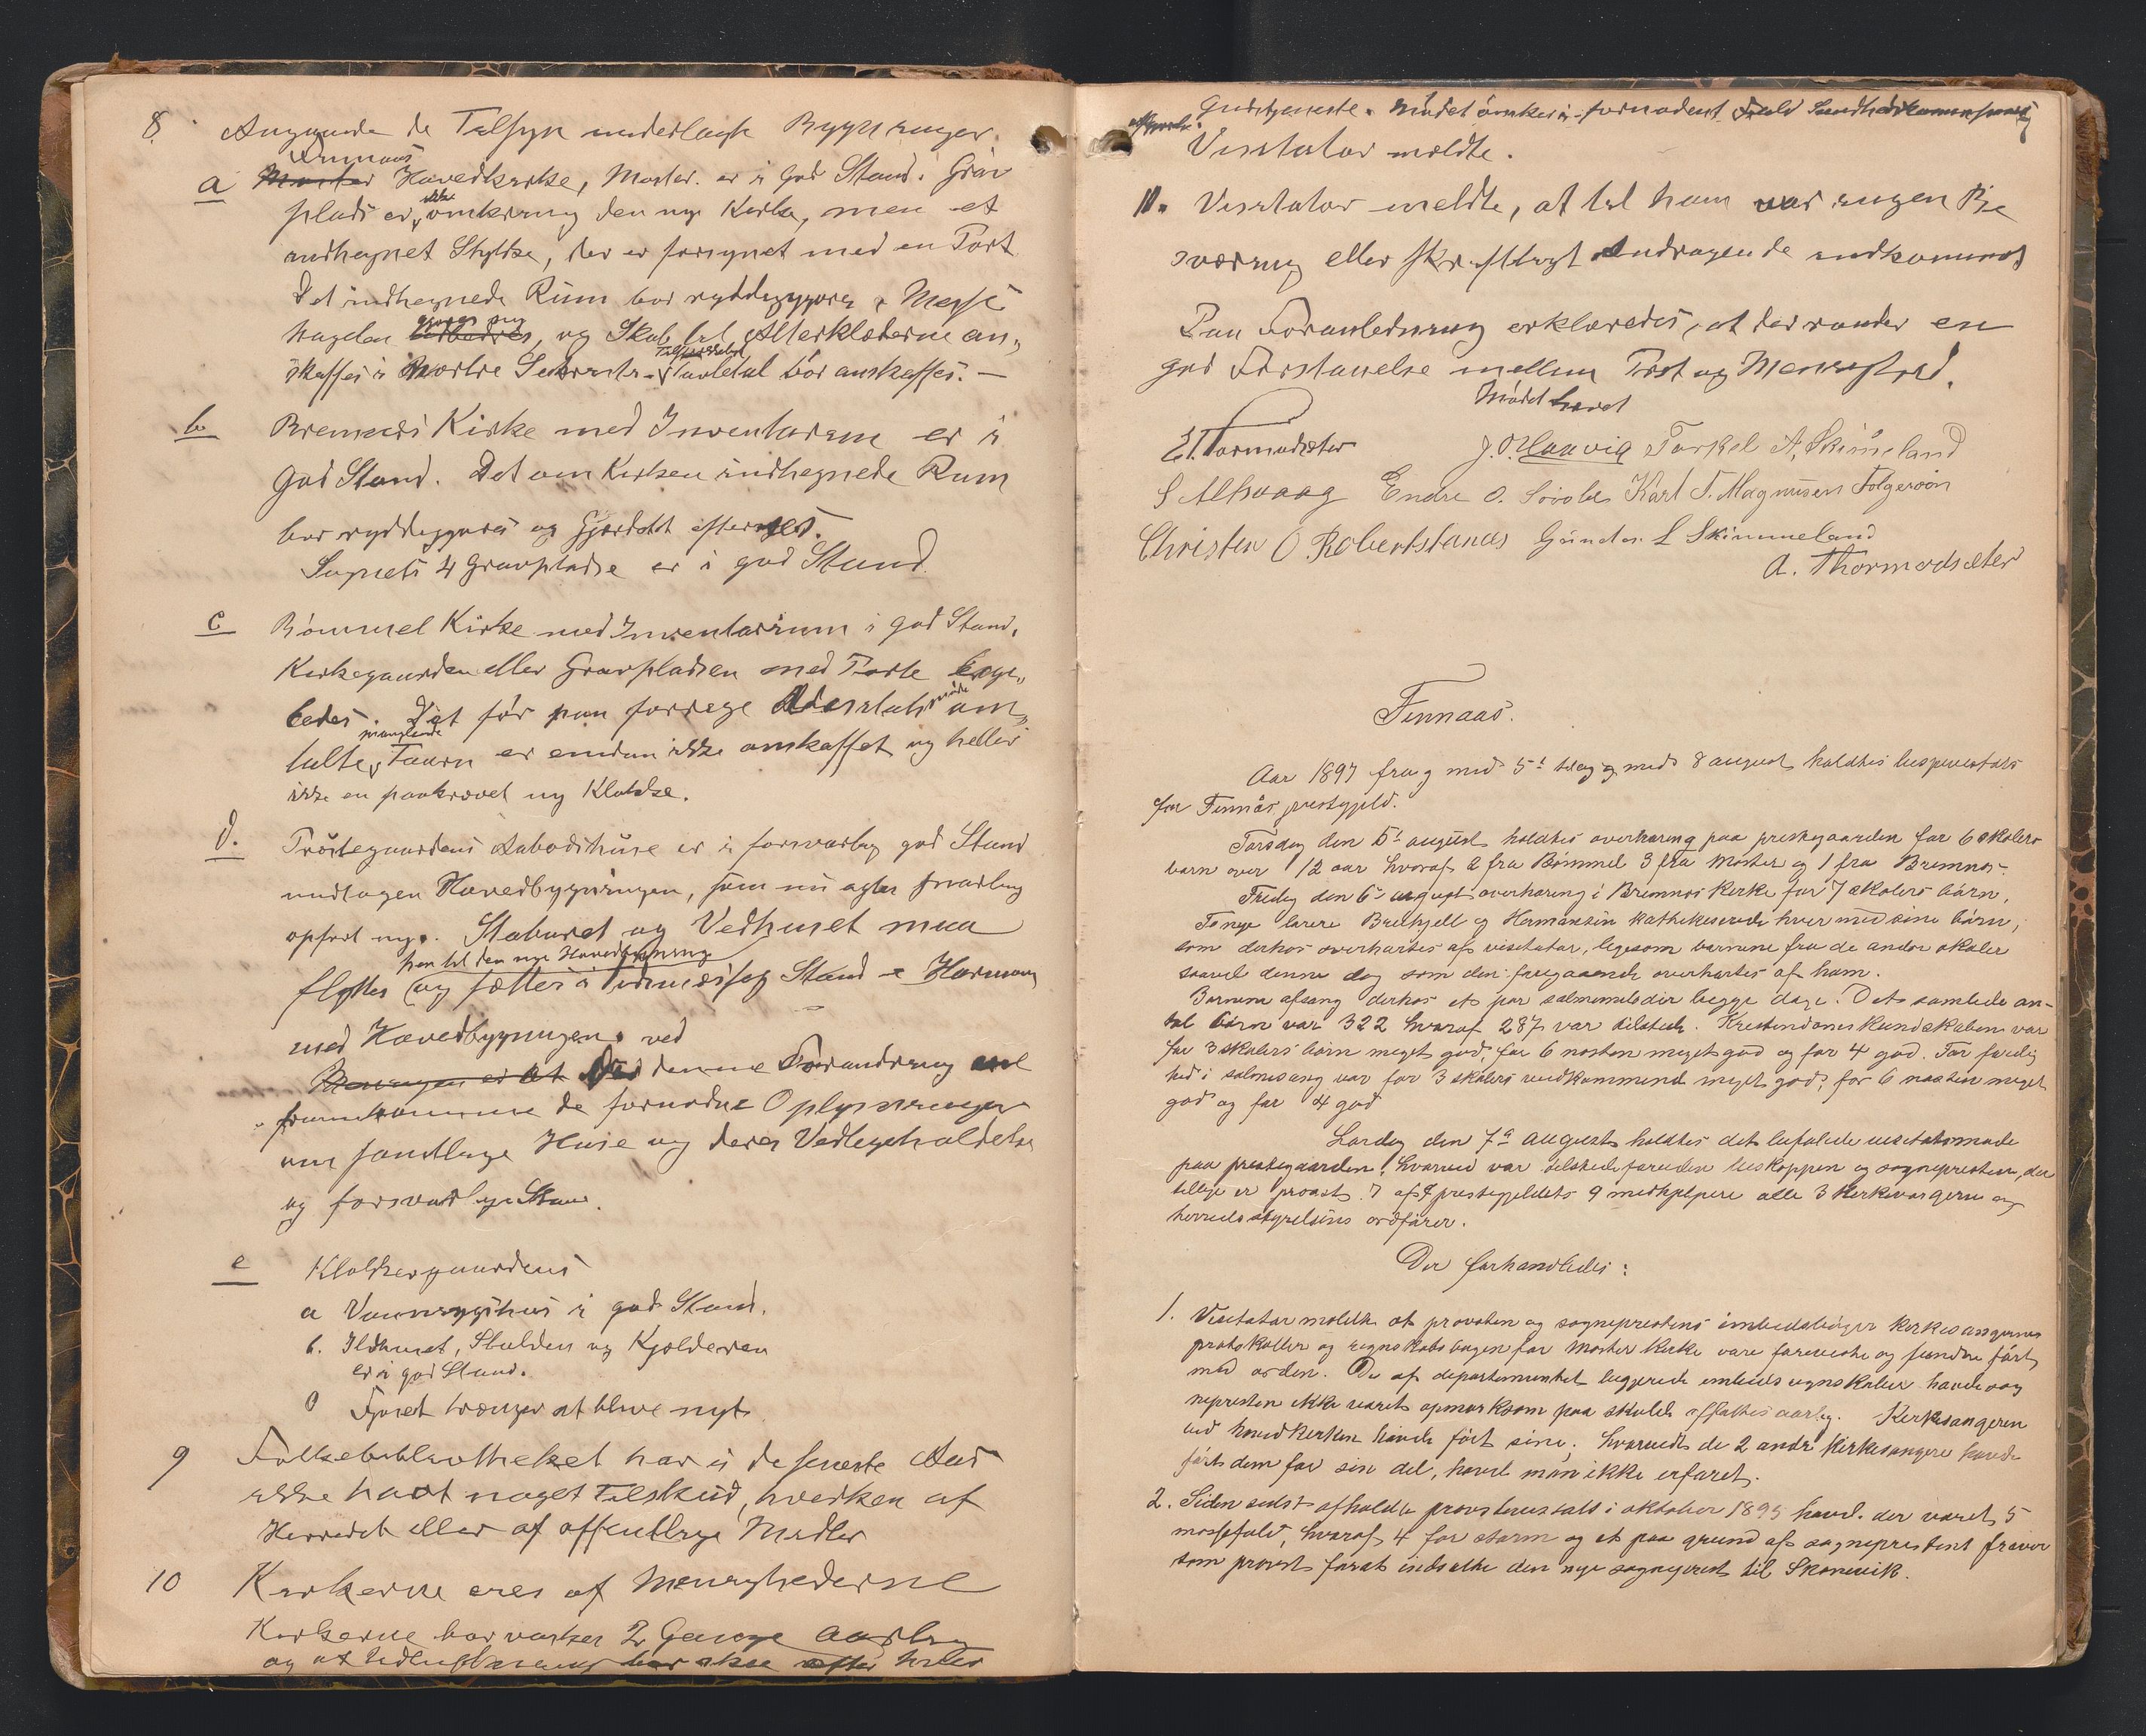 8. Angaaende de Tilsyn underlagte Bygninger.
Finnaas
a Moster Hovedkirke, Moster. er i god Stand. Grav
plads er ikke omkring den nye Kirke, men et
indhegnet Stykke, der er forsynet med en Port
Det indhegnede Rum bør ryddiggjøres, Messe
hagelen og Skab til Alterklæderne an„
skaffes i Tavletal bør anskaffes. —
b Bremnes Kirke med Inventarium er i
god Stand. Det om Kirken indhegnede Rum
bør ryddiggjøres og Gjerdet efterses.
Sognets 4 Gravpladse er i god Stand.
c Bømmel Kirke med Inventarium i god Stand.
Kirkegaarden eller Gravpladsen med Porte lige„
ledes. Det før paa forrige Visitats møde om„
talte manglende Taarn er endnu ikke anskaffet og heller
ikke en paakrævet ny Klokke.
d. Præstegaardens Aabodshuse er i forsvarlig god Stand
undtagen Hovedbygningen, som nu agtes snarlig
opført ny. Staburet og Vedhuset maa
hen til den nye Hovedbygning
flyttes og sættes i Stand – Harmoni
med Hovedbygningen. ved
Meningen er at Ved denne Forandring vil
fremkomme de fornødne Oplysninger
om samtlige Huse og deres Vedligeholdelse
og forsvarlige Stand.
e Klokkergaardens
a Vaaningshus i god Stand.
b. Ildhuset, Stalden og Kjælderen
er i god Stand.
Fjøset trænger at blive nyt
9 Folkebibliotheket har i de seneste Aar
ikke havt noget Tilskud, hverken af
Herredet eller af offentlige Midler
10 Kirkerne eies af Menighederne
Kirkerne bør vaskes 2 Gange aarlig
og at Udluftning bør ske efter hver
Gudstjeneste. Mødet ønsker i fornødent Fald Sundhedskommissionens
Visitator meldte.
11. Visitator meldte, at til ham var ingen Be
sværing eller skriftligt Andragende indkommet
Paa Foranledning erklæredes, at der raader en
god Forstaaelse mellem Prest og Menighed.
Mødet hævet
E. Tormodsæter J. O. Haavig Torkel A. Skimeland
S Alsvaag Endre O. Karl T. Magnusen Folgerøøn
Christen O Robertstanes Gunder L Skimmeland
A. Thormodsæter
Finnaas.
Aar 1897 fra og med 5te til og med 8 august holdtes bispevisitats
for Finnås prestegjeld.
Torsdag den 5te august holdtes overhøring paa prestegaarden for 6 skolers
børn over 12 aar hvoraf 2 fra Bømmel 3 fra Moster og 1 fra Bremnes.
Fredag den 6te august overhøring i Bremnes Kirke for 7 skolers børn.
To nye lærere Breifjell og Hermansen kathekeserede hver med sine børn,
som derhos overhørtes af visitator, ligesom børnene fra de andre skoler
saavel denne dag som den foregaaende overhørtes af ham.
Børnene afsang derhos et par salmemelodier begge dage. Det samlede an-
tal børn var 322 hvoraf 287 var tilstede. Kristendomskundskaben var
for 3 skolers børn meget god, for 6 næsten meget god og for 4 god. For færdig
hed i salmesang var for 3 skolers vedkommende meget god, for 6 næsten meget
god og for 4 god
Lørdag den 7de august holdtes det befalede visitatsmøde
paa prestegaarden, hvorved var tilstede foruden biskoppen og sognepresten, der
tillige er provst, 7 af prestegjeldets 9 medhjelpere alle 3 kirkeværgerne og
herredsstyrelsens ordfører.
Der forhandledes:
1. Visitator meldte at provsten og sogneprestens embedsbøger kirkesangernes
protokoller og regnskabsbogen for Moster Kirke vare foreviste og fundne ført
med orden. De af departementet byggede embeds regnskaber havde sog
nepresten ikke været opmerksom paa skulde affattes aarlig. Kirkesangeren
ved hovedkirken havde ført sine; hvorvidt de 2 andre kirkesangere havde
ført dem for sin del, havde man ikke erfaret.
2. Siden sidst afholdte provstevisitats i oktober 1895 havde der været 5
messefald, hvoraf 4 for storm og et paa grund af sogneprestens fravær
som provst forat indsætte den nye sogneprest til Skonevik.